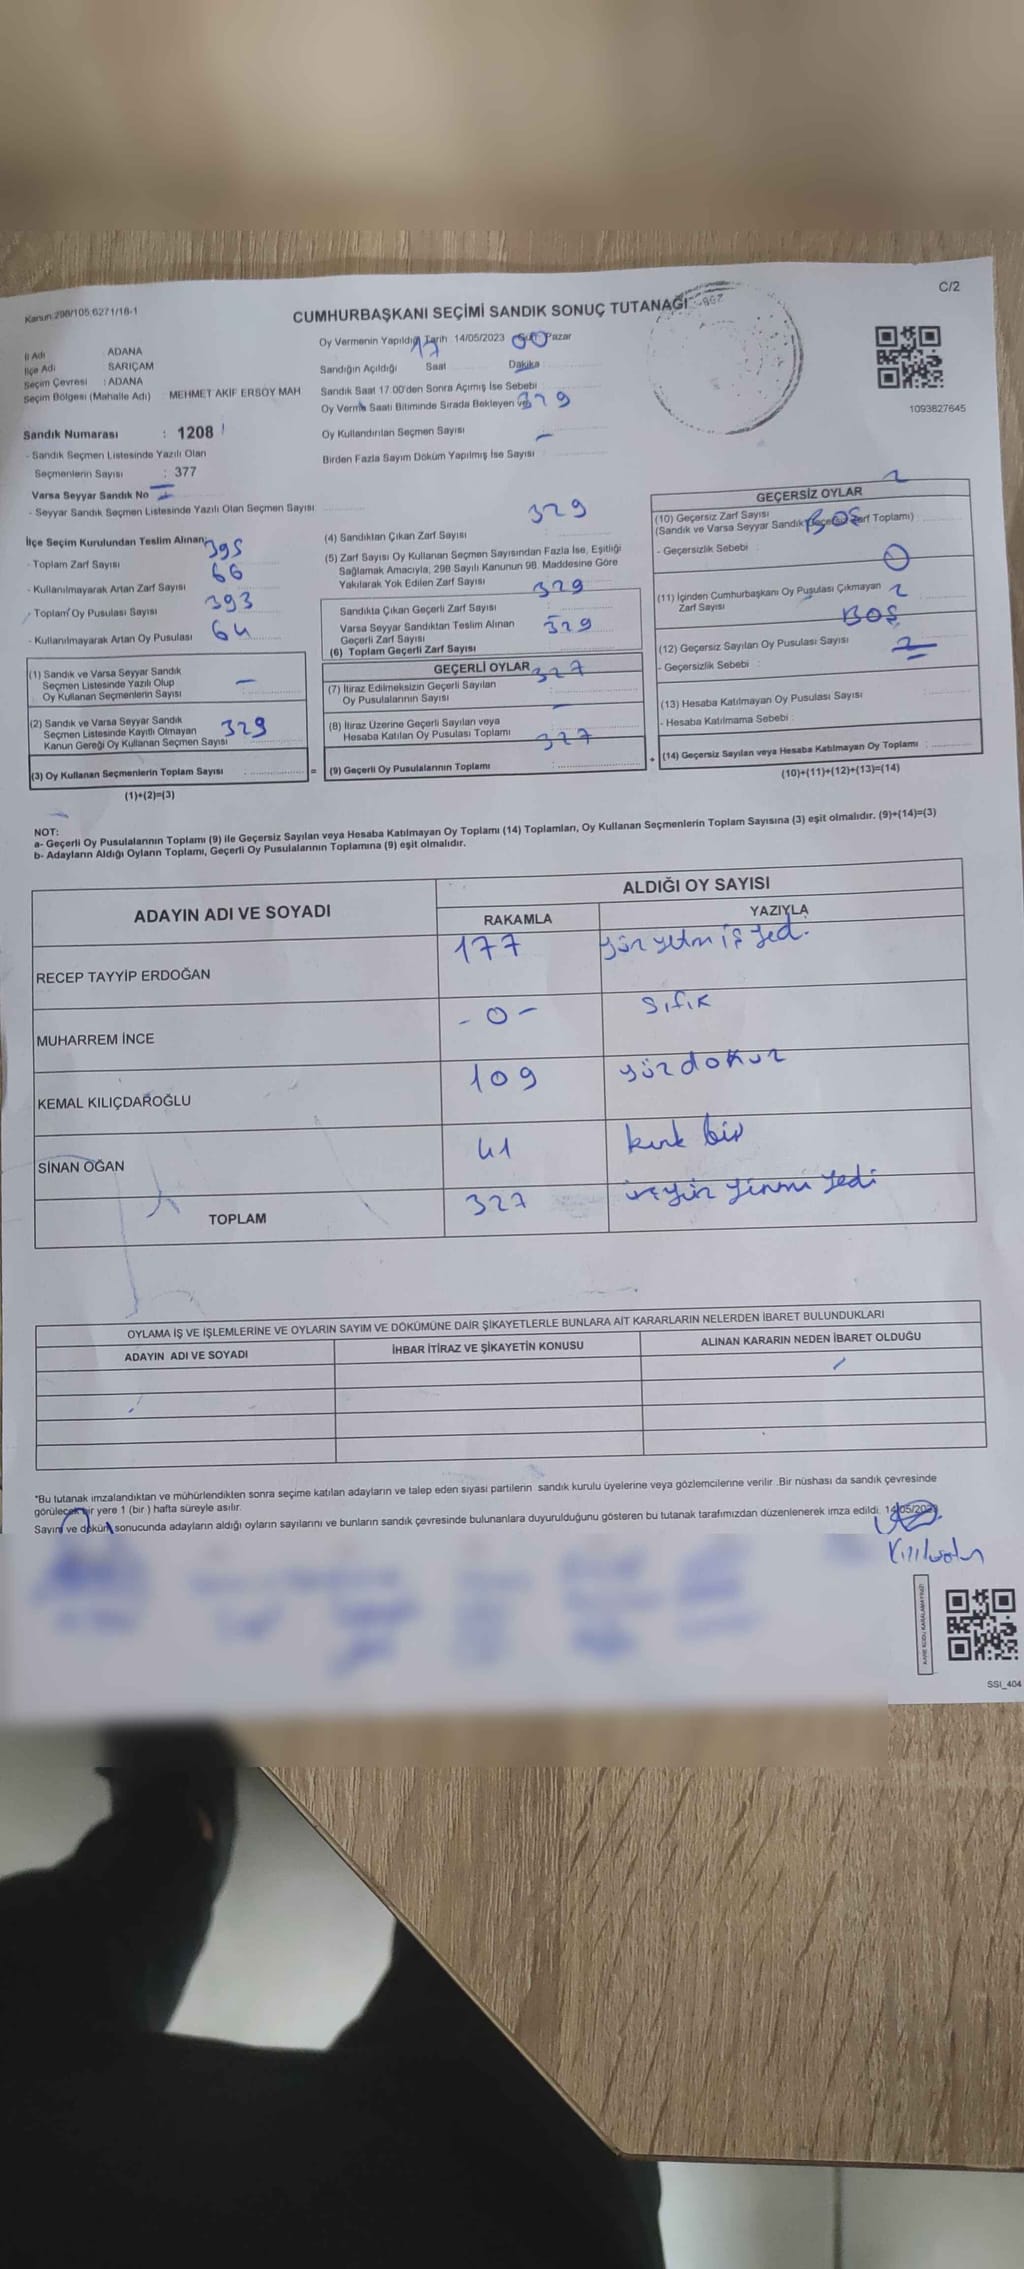 C/2
Kanun:298/105,6271/18-1
CUMHURBAŞKANI SEÇİMİ SANDIK SONUÇ TUTANAĞI
Oy Vermenin Yapıldığı Tarih 14/05/2023 Pazar
İl Adı : ADANA
İlçe Adı : SARIÇAM
Seçim Çevresi : ADANA
Seçim Bölgesi (Mahalle Adı) : MEHMET AKİF ERSOY MAH
Sandığın Açıldığı Saat 17 Dakika 00
Sandık Saat 17.00'den Sonra Açılmış İse Sebebi
Oy Verme Saati Bitiminde Sırada Bekleyen ve
329
Oy Kullandırılan Seçmen Sayısı
Birden Fazla Sayım Döküm Yapılmış İse Sayısı –
1093827645
Sandık Numarası : 1208
- Sandık Seçmen Listesinde Yazılı Olan
Seçmenlerin Sayısı : 377
Varsa Seyyar Sandık No
- Seyyar Sandık Seçmen Listesinde Yazılı Olan Seçmen Sayısı
İlçe Seçim Kurulundan Teslim Alınan;
- Toplam Zarf Sayısı 395
- Kullanılmayarak Artan Zarf Sayısı 66
- Toplam Oy Pusulası Sayısı 393
- Kullanılmayarak Artan Oy Pusulası 64
(1) Sandık ve Varsa Seyyar Sandık
Seçmen Listesinde Yazılı Olup
Oy Kullanan Seçmenlerin Sayısı : –
(2) Sandık ve Varsa Seyyar Sandık
Seçmen Listesinde Kayıtlı Olmayan
Kanun Gereği Oy Kullanan Seçmen Sayısı 329
(3) Oy Kullanan Seçmenlerin Toplam Sayısı :
(1)+(2)=(3)
329
(4) Sandıktan Çıkan Zarf Sayısı
(5) Zarf Sayısı Oy Kullanan Seçmen Sayısından Fazla İse, Eşitliği
Sağlamak Amacıyla, 298 Sayılı Kanunun 98. Maddesine Göre
Yakılarak Yok Edilen Zarf Sayısı
329
Sandıkta Çıkan Geçerli Zarf Sayısı
Varsa Seyyar Sandıktan Teslim Alınan
Geçerli Zarf Sayısı
329
(6) Toplam Geçerli Zarf Sayısı
GEÇERLİ OYLAR
327
(7) İtiraz Edilmeksizin Geçerli Sayılan
Oy Pusulalarının Sayısı
–
(8) İtiraz Üzerine Geçerli Sayılan veya
Hesaba Katılan Oy Pusulası Toplamı
327
(9) Geçerli Oy Pusulalarının Toplamı
=
+
2
GEÇERSİZ OYLAR
(10) Geçersiz Zarf Sayısı
(Sandık ve Varsa Seyyar Sandık Geçersiz Zarf Toplamı)
BOŞ
- Geçersizlik Sebebi :
0
(11) İçinden Cumhurbaşkanı Oy Pusulası Çıkmayan
Zarf Sayısı
2
BOŞ
(12) Geçersiz Sayılan Oy Pusulası Sayısı
2
- Geçersizlik Sebebi :
(13) Hesaba Katılmayan Oy Pusulası Sayısı
- Hesaba Katılmama Sebebi :
(14) Geçersiz Sayılan veya Hesaba Katılmayan Oy Toplamı :
(10)+(11)+(12)+(13)=(14)
NOT:
a- Geçerli Oy Pusulalarının Toplamı (9) ile Geçersiz Sayılan veya Hesaba Katılmayan Oy Toplamı (14) Toplamları, Oy Kullanan Seçmenlerin Toplam Sayısına (3) eşit olmalıdır. (9)+(14)=(3)
b- Adayların Aldığı Oyların Toplamı, Geçerli Oy Pusulalarının Toplamına (9) eşit olmalıdır.
ADAYIN ADI VE SOYADI
ALDIĞI OY SAYISI
RAKAMLA YAZIYLA
RECEP TAYYİP ERDOĞAN 177 yüz yetmiş yedi
MUHARREM İNCE - 0 - sıfır
KEMAL KILIÇDAROĞLU 109 yüzdokuz
SİNAN OĞAN 41 kırk bir
TOPLAM 327 üçyüz yirmi yedi
OYLAMA İŞ VE İŞLEMLERİNE VE OYLARIN SAYIM VE DÖKÜMÜNE DAİR ŞİKAYETLERLE BUNLARA AİT KARARLARIN NELERDEN İBARET BULUNDUKLARI
ADAYIN ADI VE SOYADI İHBAR İTİRAZ VE ŞİKAYETİN KONUSU ALINAN KARARIN NEDEN İBARET OLDUĞU
*Bu tutanak imzalandıktan ve mühürlendikten sonra seçime katılan adayların ve talep eden siyasi partilerin sandık kurulu üyelerine veya gözlemcilerine verilir .Bir nüshası da sandık çevresinde
görülecek bir yere 1 (bir ) hafta süreyle asılır.
Sayım ve döküm sonucunda adayların aldığı oyların sayılarını ve bunların sandık çevresinde bulunanlara duyurulduğunu gösteren bu tutanak tarafımızdan düzenlenerek imza edildi. 14/05/2023
KARE KODU KARALAMAYINIZ!
SSI_404